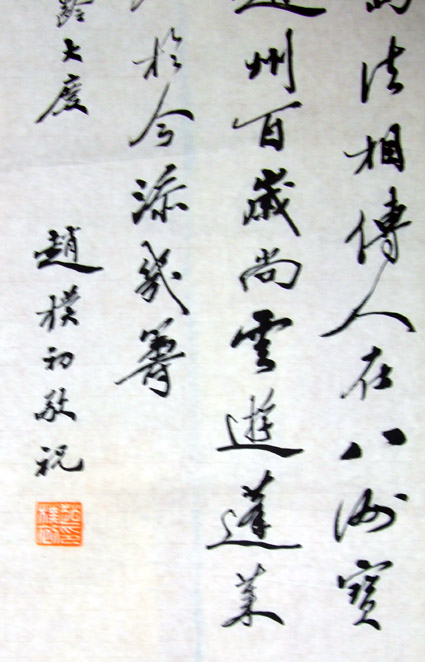 法相傳人在八洲寶
州百歲尚雲遊蓬萊
於今添幾籌
齡大度
趙樸初敬祝